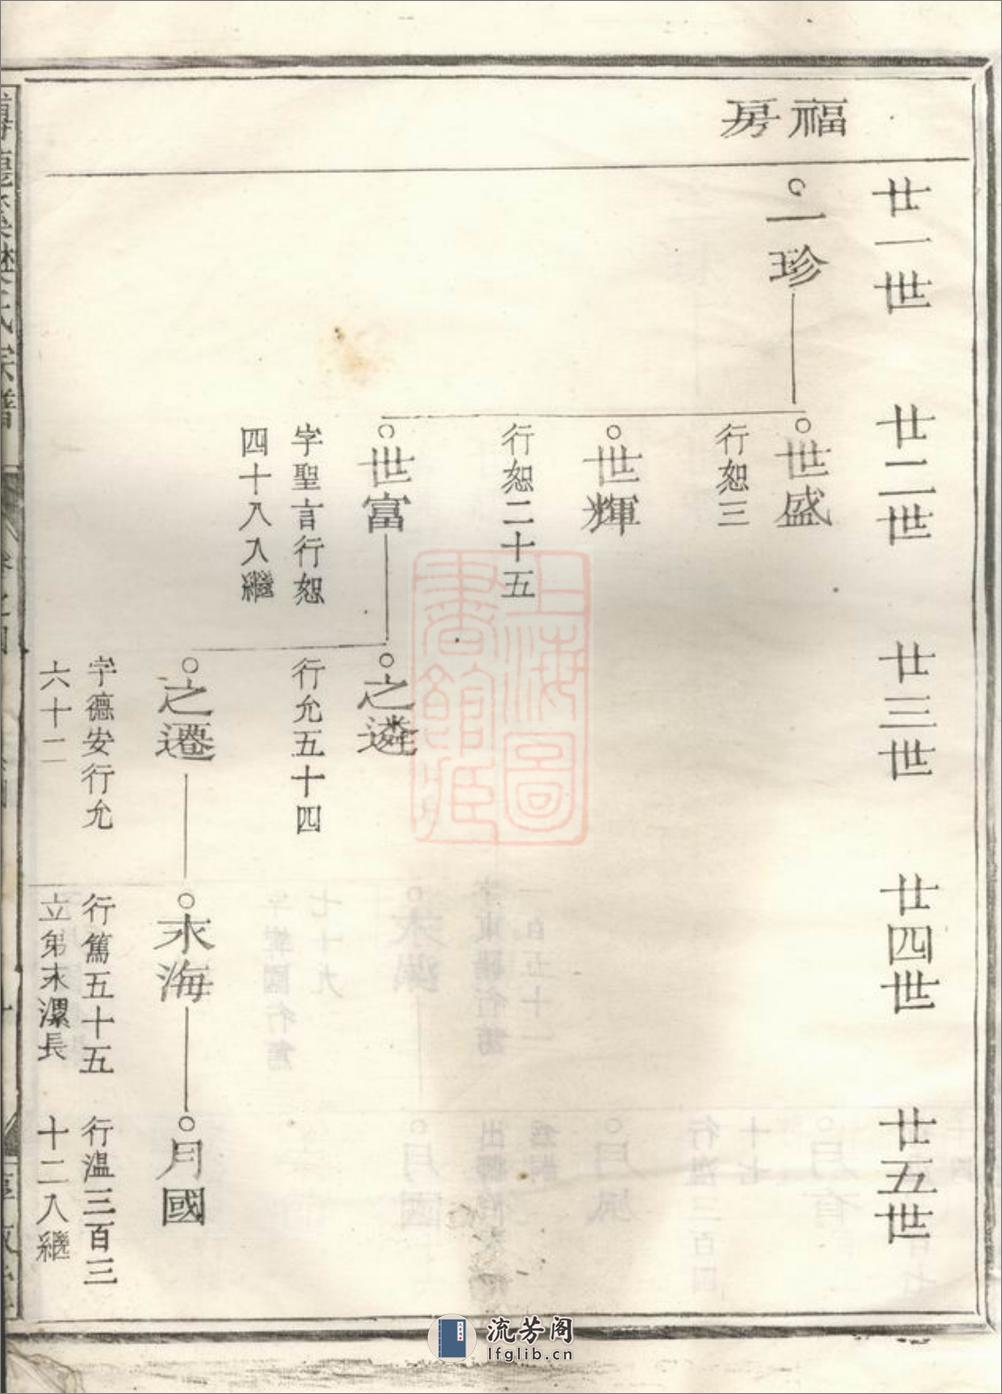 福房
廿一世
廿二世
廿三世
廿四世
廿五世
一珍
世盛
行恕三
世輝
行恕二十五
世富
字聖言行恕
四十八入繼
之遴
行允五十四
之遷
字德安行允
六十二
末海
行篤五十五
立弟末漯長
月國
行溫三百三
十二入繼
氏宗譜
上海圖
書館藏
流芳阁
lfglib.cn